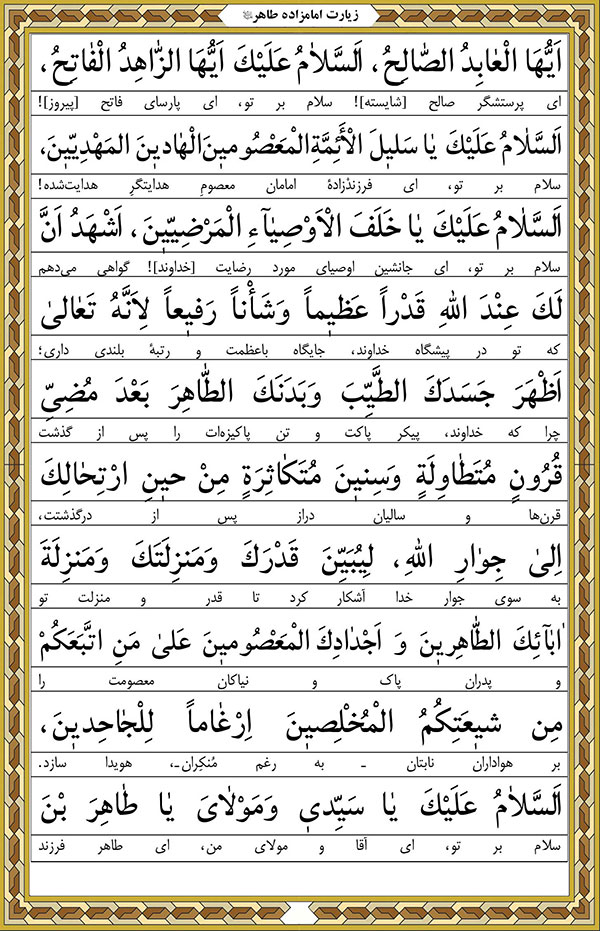 زیارت امامزاده طاهر
اَیُّهَا الْعٰابِدُ الصّٰالِحُ، اَلسَّلاٰمُ عَلَیْکَ اَیُّهَا الزّٰاهِدُ الْفٰاتِحُ،
ای پرستشگر صالح [شایسته]! سلام بر تو، ای پارسای فاتح [پیروز]!
اَلسَّلاٰمُ عَلَیْکَ یٰا سَلیٖلَ الْأَئِمَّةِ الْمَعْصُومیٖنَ الْهٰادیٖنَ الْمَهْدِیّیٖنَ،
سلام بر تو، ای فرزندْزادهٔ امامان معصومِ هدایتگرِ هدایت‌شده!
اَلسَّلاٰمُ عَلَیْکَ یٰا خَلَفَ الْاَوْصِیٰآءِ الْمَرْضِیّیٖنَ، اَشْهَدُ اَنَّ
سلام بر تو، ای جانشین اوصیای مورد رضایت [خداوند]! گواهی می‌دهم
لَکَ عِنْدَ اللهِ قَدْراً عَظیٖماً وَشَأْناً رَفیٖعاً لِاَنَّهُ تَعٰالیٰ
که تو در پیشگاه خداوند، جایگاه باعظمت و رتبهٔ بلندی داری؛
اَظْهَرَ جَسَدَکَ الطَّیِّبَ وَبَدَنَکَ الطّٰاهِرَ بَعْدَ مُضِیِّ
چرا که خداوند، پیکر پاکت و تن پاکیزه‌ات را پس از گذشت
قُرُونٍ مُتَطٰاوِلَةٍ وَسِنیٖنَ مُتَکٰاثِرَةٍ مِنْ حیٖنِ ارْتِحٰالِکَ
قرن‌ها و سالیان دراز پس از درگذشتت،
اِلیٰ جِوٰارِ اللهِ، لِیُبَیِّنَ قَدْرَکَ وَمَنزِلَتَکَ وَمَنزِلَةَ
به سوی جوار خدا آشکار کرد تا قدر و منزلت تو
اٰبٰآئِکَ الطّٰاهِریٖنَ وَ اَجْدٰادِکَ الْمَعْصُومیٖنَ عَلیٰ مَنِ اتَّبَعَکُمْ
و پدران پاک و نیاکان معصومت را
مِن شیٖعَتِکُمُ الْمُخْلِصیٖنَ اِرْغٰاماً لِلْجٰاحِدیٖنَ،
بر هواداران نابتان ـ به رغم مُنکِران‌ـ، هویدا سازد.
اَلسَّلاٰمُ عَلَیْکَ یٰا سَیِّدیٖ وَمَوْلاٰیَ یٰا طٰاهِرَ بْنَ
سلام بر تو، ای آقا و مولای من، ای طاهر فرزند